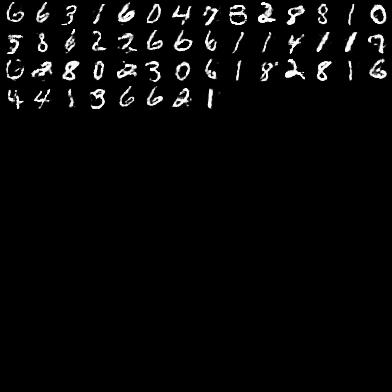 6 6 3 1 6 0 4 7 8 2 8 8 1 0
5 8 6 2 2 6 6 6 1 1 4 1 1 7
6 2 8 0 2 3 0 6 1 8 2 8 1 6
4 4 1 3 6 6 2 1